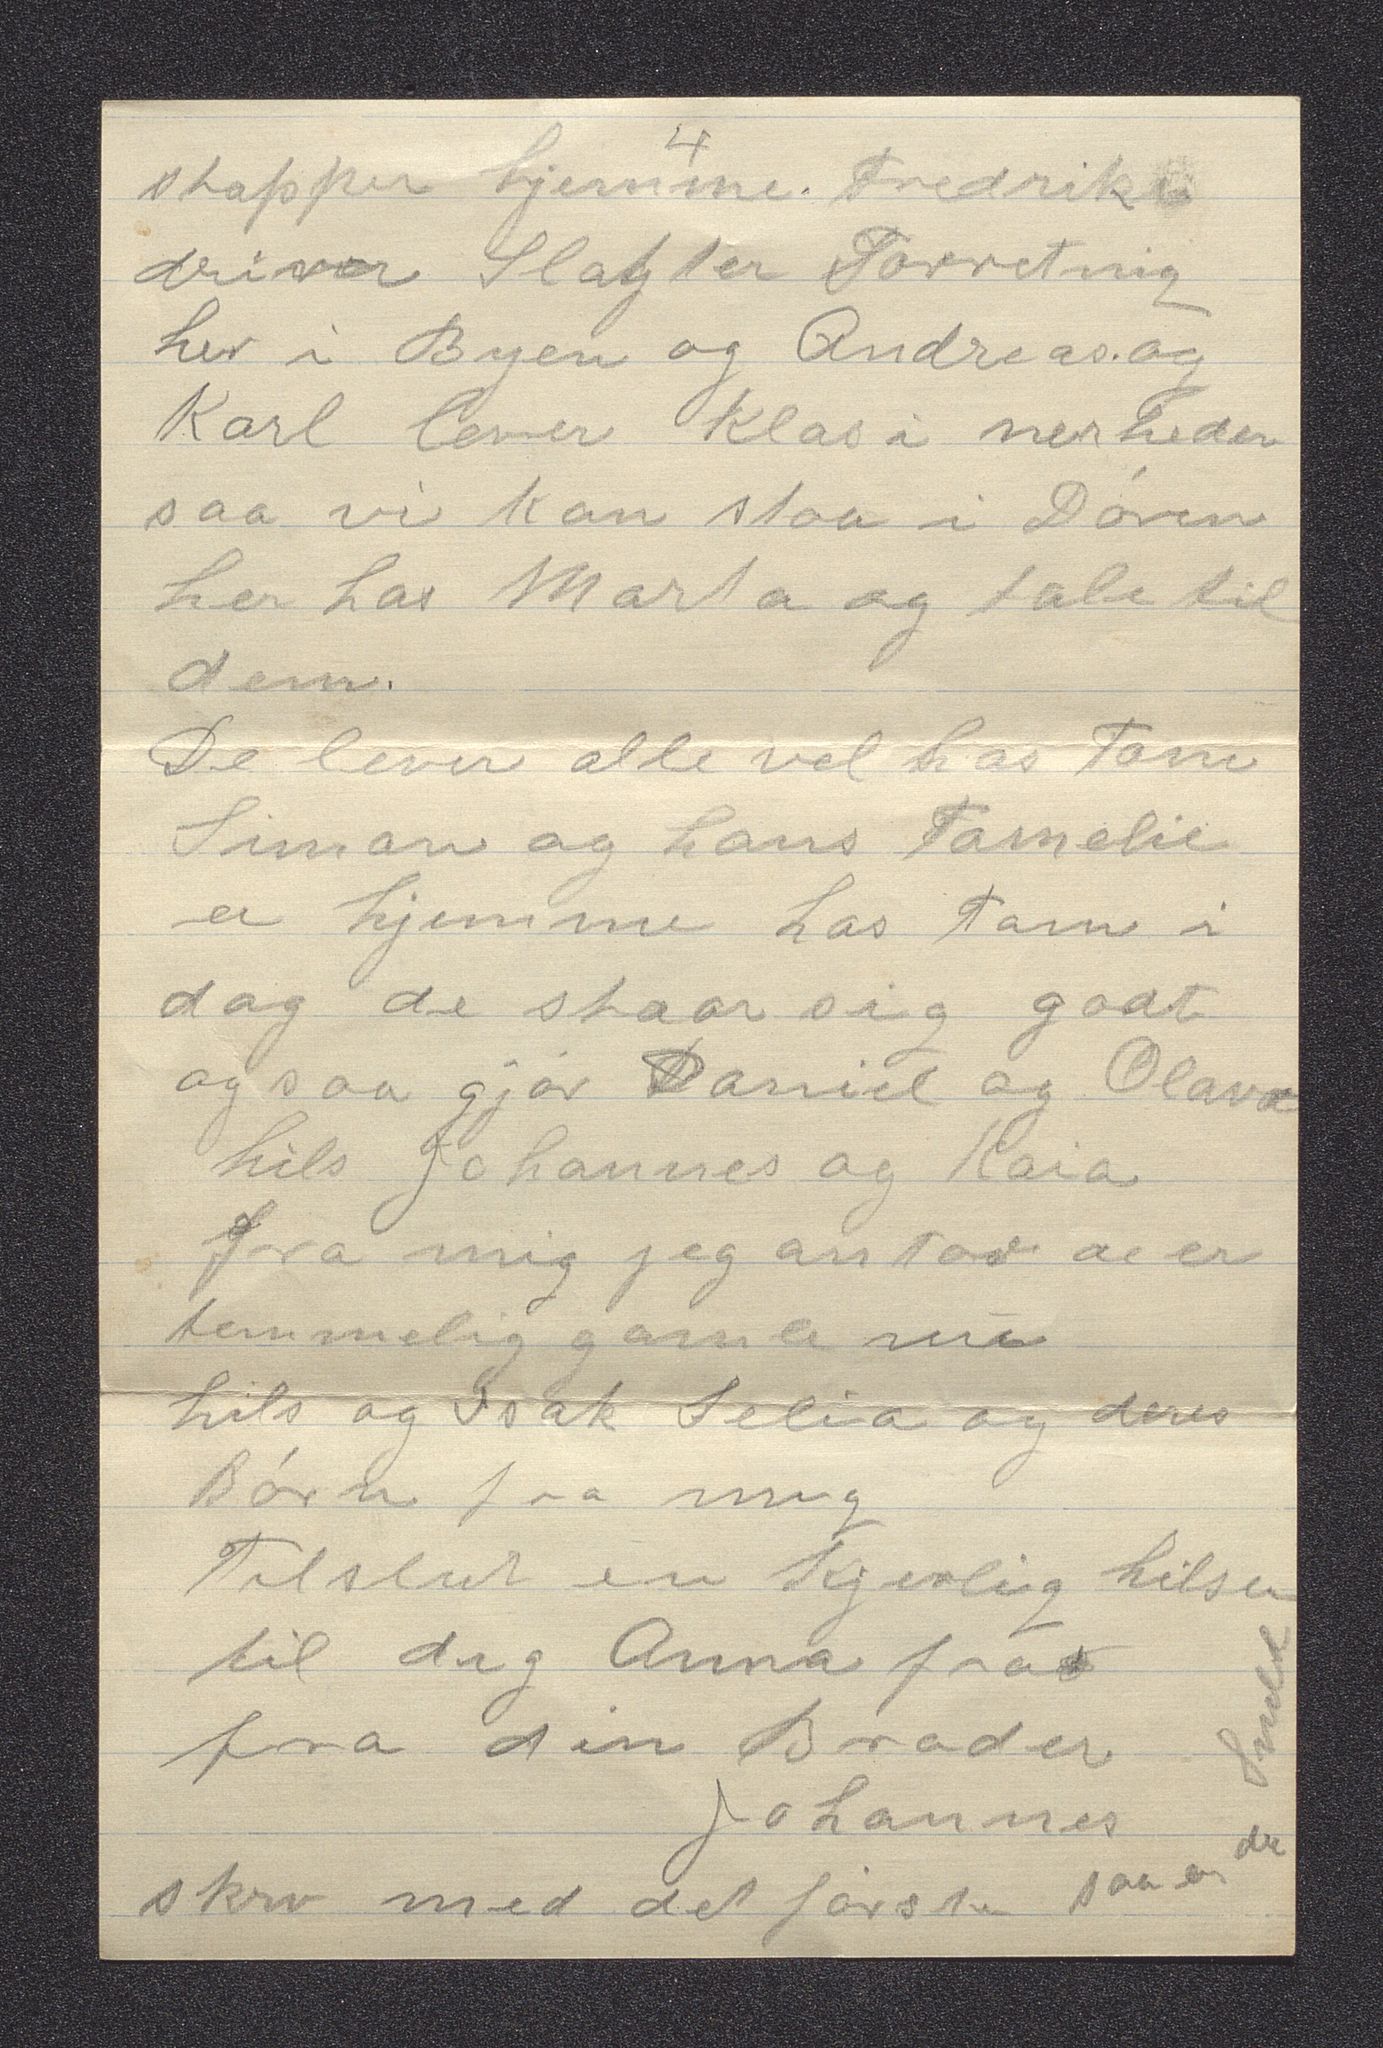 4
stapper hjemme. Fredrik
driver Slagter Forretnig
her i Byen og Andreas. og
Karl lever Klas i nerheden
saa vi kan staa i Dóren
her has Marta og tale til
dem.
De lever alle vel has Tom
Siman og hans Famelie
er hjemme has Tam i
dag de staar sig godt
og saa gjór Daniel og Olava
hils Johannes og Kaia
fra mig jeg antar de er
temmelig gamle nu
hils og Isak Selia og deres
Bórn fra mig
Tilslut en Kjerlig hilsen
til dig Anna fra
fra din Broder
Johannes
skriv med det fórste saa er du Snild